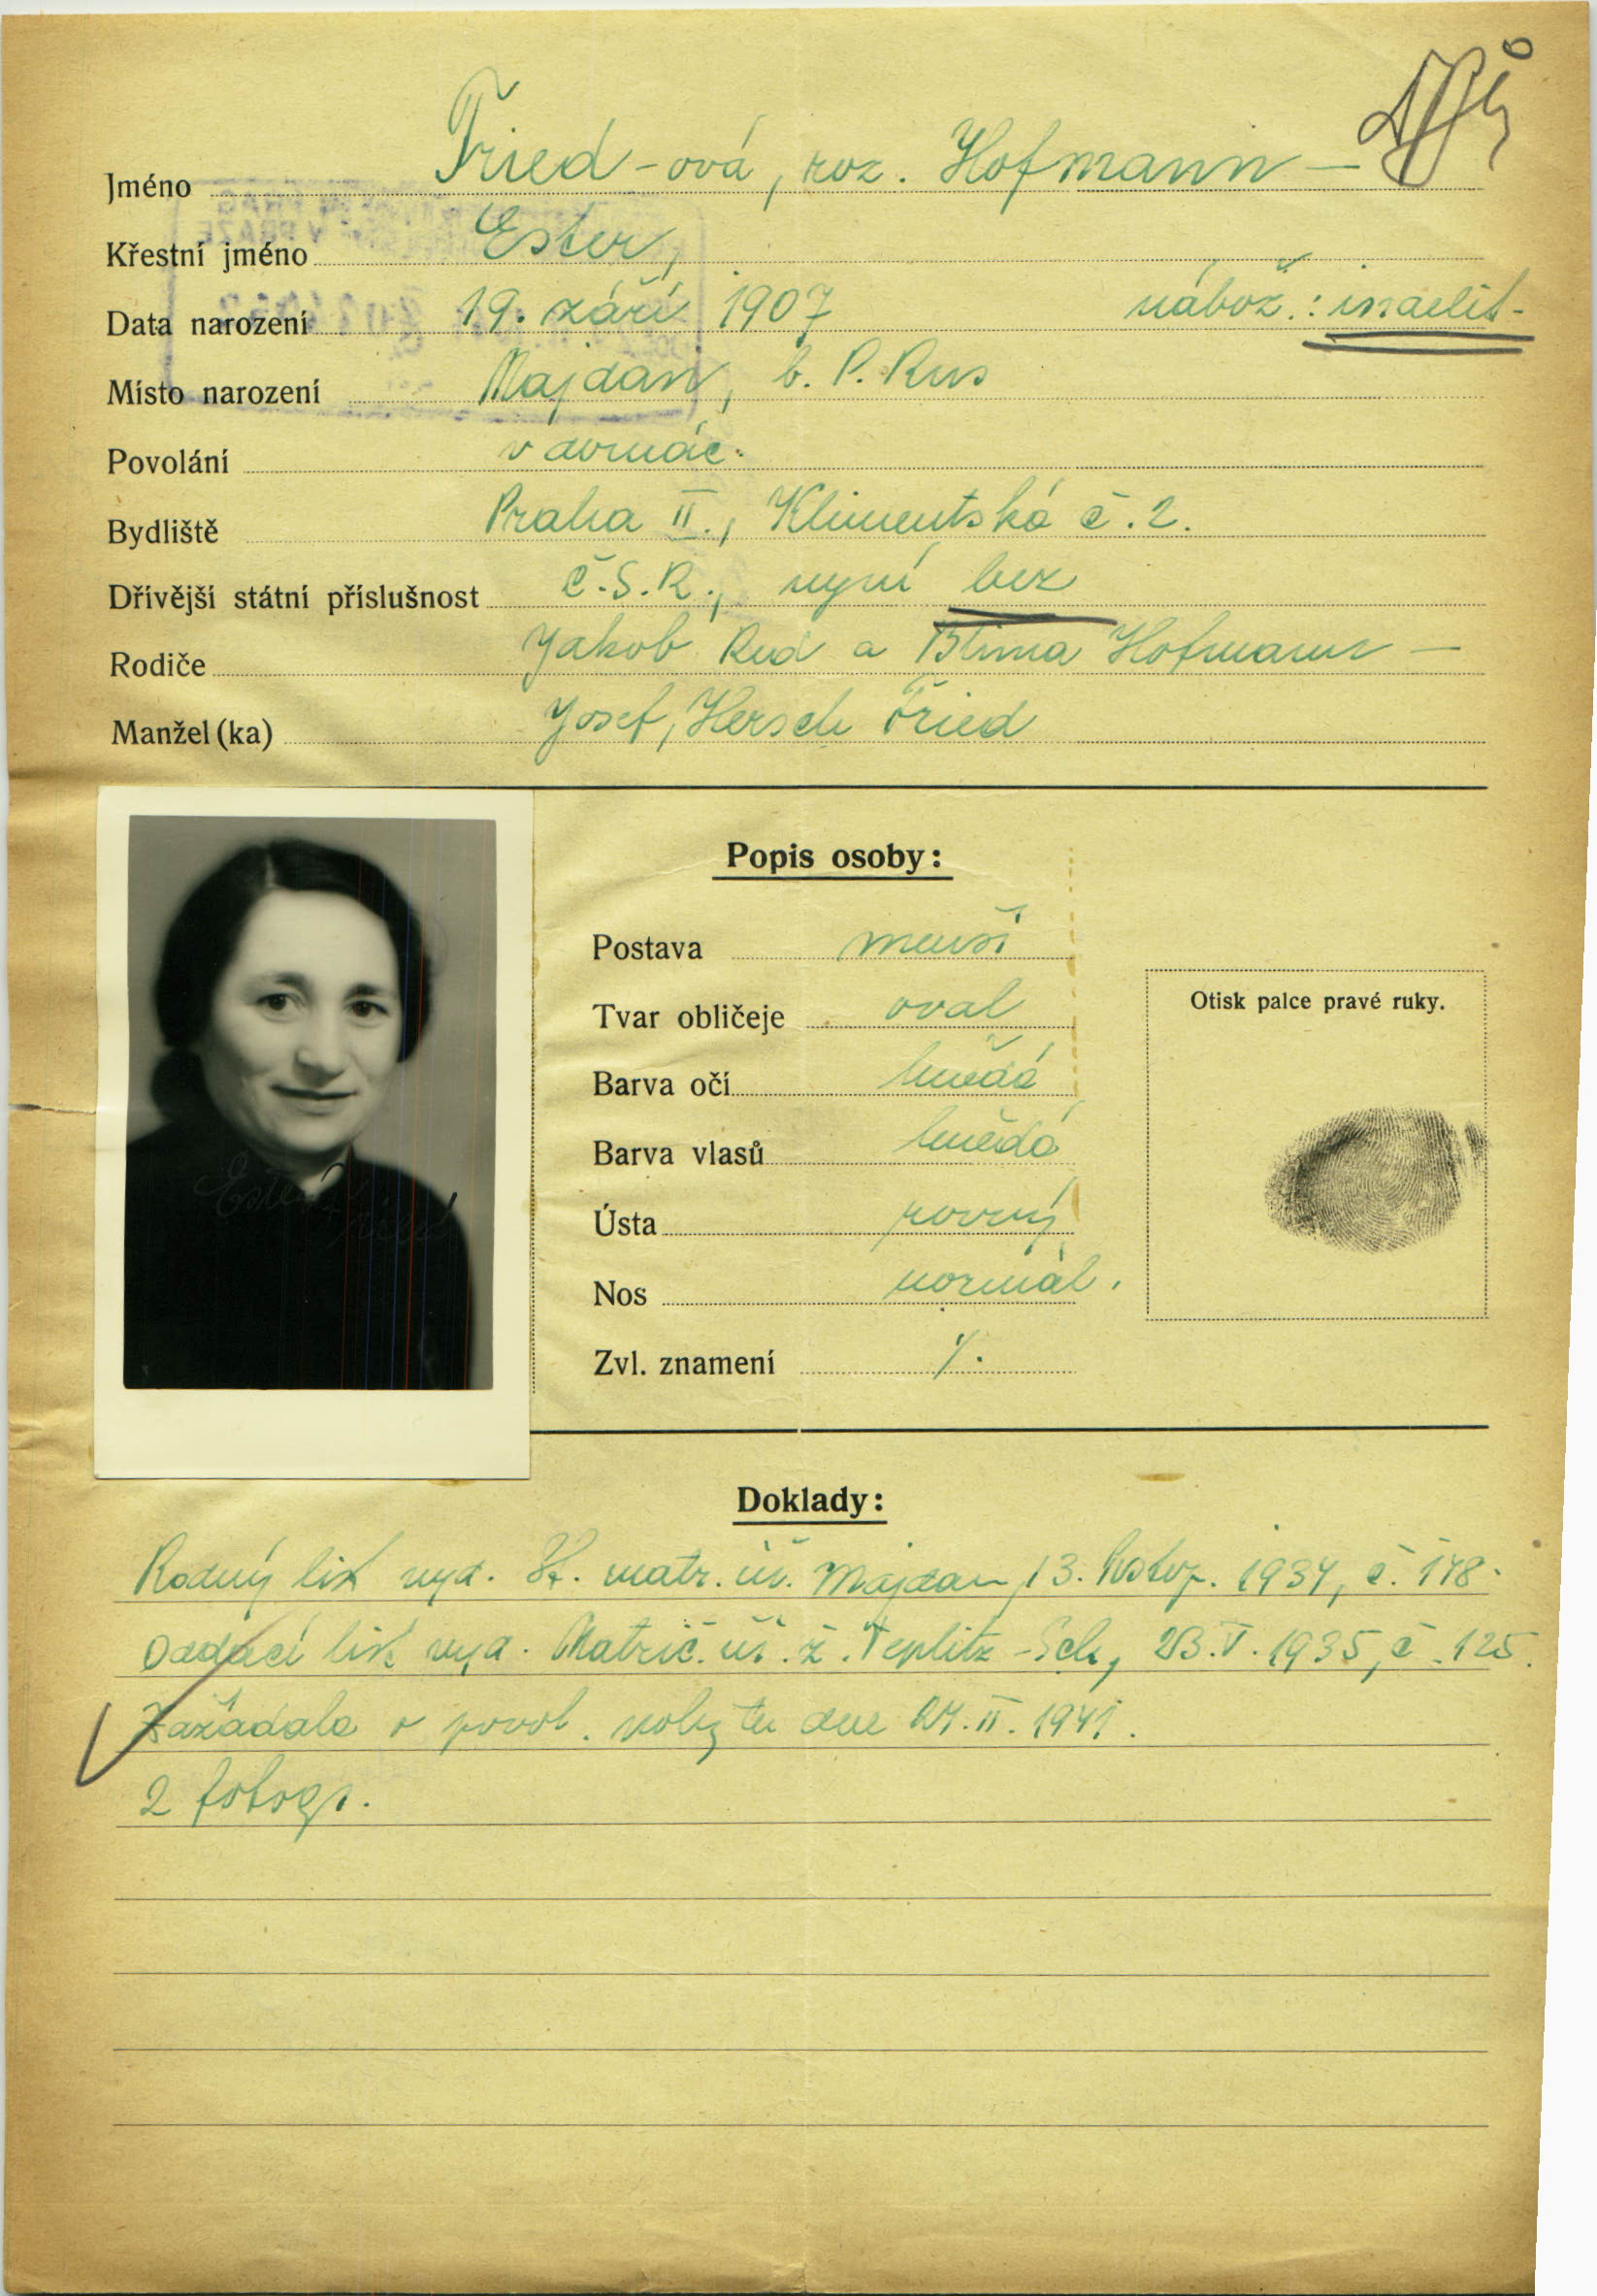 Jméno Fried-ová, roz. Hofmann -
Křestní jméno Ester,
Data narození 19. září 1907 nábož.: israelit-
Místo narození Majdan, b. P. Rus
Povolání v domác.
Bydliště Praha II., Klimentská č. 2.
Dřívější státní příslušnost Č.S.R., nyní bez
Rodiče Jakob Rud a Blima Hofmann -
Manžel(ka) Josef, Hersch Fried
Popis osoby:
Postava menší
Tvar obličeje oval
Barva očí hnědá
Barva vlasů hnědá
Ústa rovný
Nos normál.
Zvl. znamení ⁒
Otisk palce pravé ruky.
Ester Fried
Doklady:
Rodný list vyd. St. matr. úř. Majdan, 13. listop. 1934, č. 148.
Oddací list vyd. Matrič. úř. ž. Teplitz-Sch, 23.V.1935, č. 125.
Zažádala o povol. pobytu dne 24.II.1941.
2 fotogr.